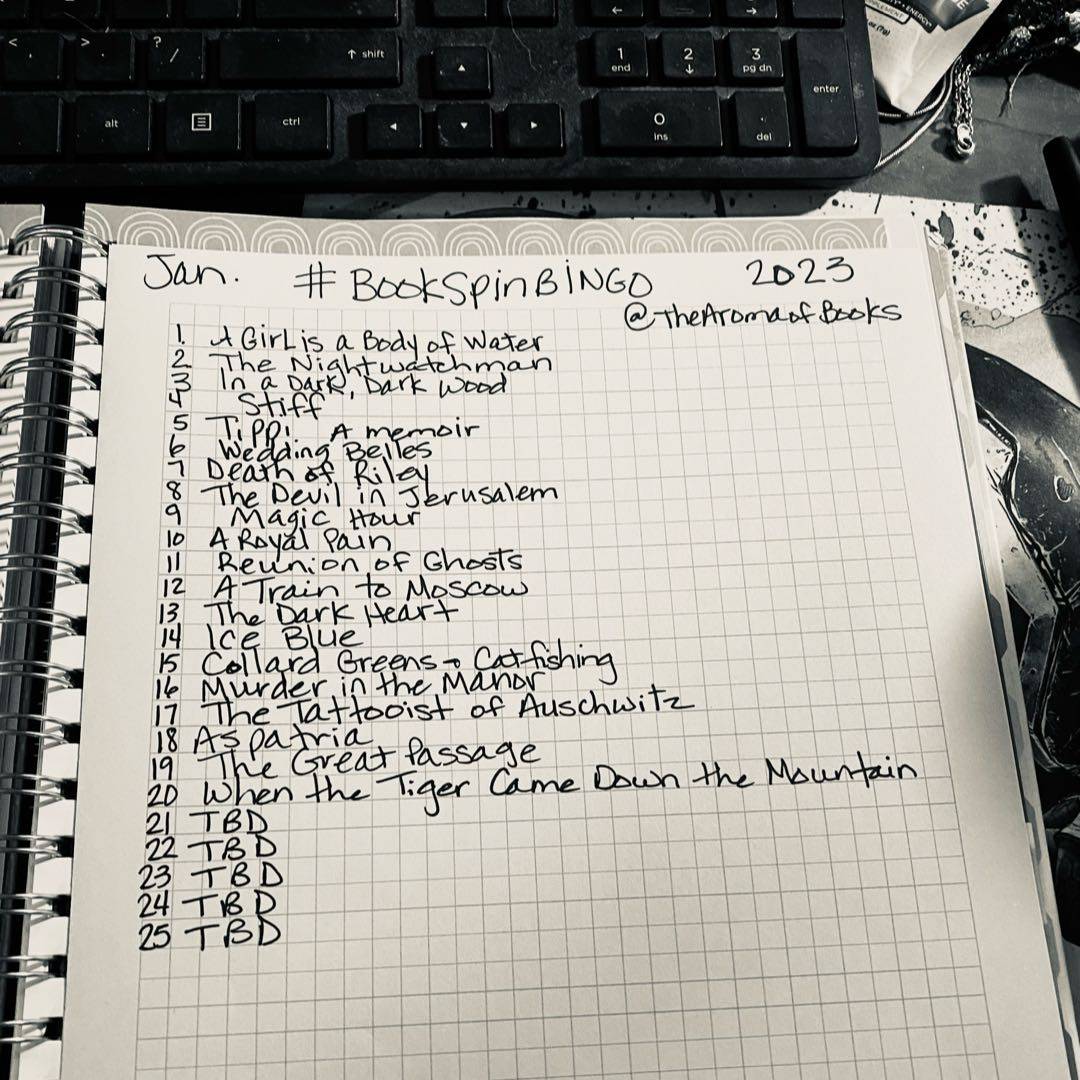 < ,
> .
? /
↑ shift
▲
1 end
2 ↓
3 pg dn
enter
alt
ctrl
◄
▼
►
0 ins
. del
ENERGY
Jan. #BookSpinBiNGO 2023
@TheAromaofBooks
1. A Girl is a Body of Water
2 The Nightwatchman
3 In a Dark, Dark Wood
4 Stiff
5 Tippi A memoir
6 Wedding Belles
7 Death of Riley
8 The Devil in Jerusalem
9 Magic Hour
10 A Royal Pain
11 Reunion of Ghosts
12 A Train to Moscow
13 The Dark Heart
14 Ice Blue
15 Collard Greens → Catfishing
16 Murder in the Manor
17 The Tattooist of Auschwitz
18 Aspatria
19 The Great Passage
20 When the Tiger Came Down the Mountain
21 TBD
22 TBD
23 TBD
24 TBD
25 TBD